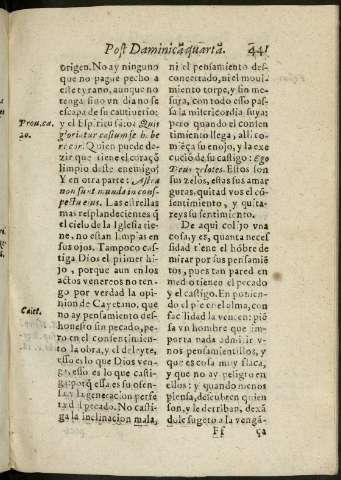 Post Dominicã quarta. 441
origen. No ay ninguno
que no pague pecho a
este tyrano, aunque no
tenga sino vn dia no se
escapa de su cautiuerio:
y el Espiritu santo: Quis
gloriatur castum se h. be
re cor. Quien puede de-
zir que tiene el coraçõ
limpio deste enemigo?
Y en otra parte: Astra
non sunt munda in cons-
pectu eius. Las estrellas
mas resplandecientes q̃
el cielo de la Iglesia tie-
ne, no estan limpias en
sus ojos. Tampoco cas-
tiga Dios el primer hi-
jo, porque aun en los
actos venereos no ten-
go por verdad la opi-
nion de Cayetano, que
no ay pensamiento des-
honesto sin pecado, pe-
ro en el consentimien-
to la obra, y el deleyte,
esso es lo que Dios ven-
ga, esso es lo que casti-
ga: porq̃ essa es su ofen-
sa, y la generacion perfe
ta del pecado. No casti-
ga la inclinacion mala,
Prou. ca.
20.
Caiet.
ni el pensamiento des-
concertado, ni el moui-
miento torpe, y sin me-
sura, con todo esso pas-
sa la misericordia suya:
pero quando el consen-
timiento llega, alli co-
miẽça su enojo, y la exe-
cucion de su castigo: Ego
Deus zelotes. Estos son
sus zelos, estas sus amar
guras. quitad vos el cõ-
sentimiento, y quita-
reys su sentimiento.
De aqui colijo vna
cosa, y es, quanta neces
sidad tiene el hõbre de
mirar por sus pensamiẽ
tos, pues tan pared en
medio tienen el pecado
y el castigo. En ponien-
do el pie en el alma, con
facilidad la vencen: piẽ
sa vn hombre que im-
porta nada admitir v-
nos pensamientillos, y
que es cosa muy flaca,
y que no ay peligro en
ellos: y quando menos
piensa, descubren quien
son, y le derriban, dexã
dole sugeto a la vengã-
Ff ça